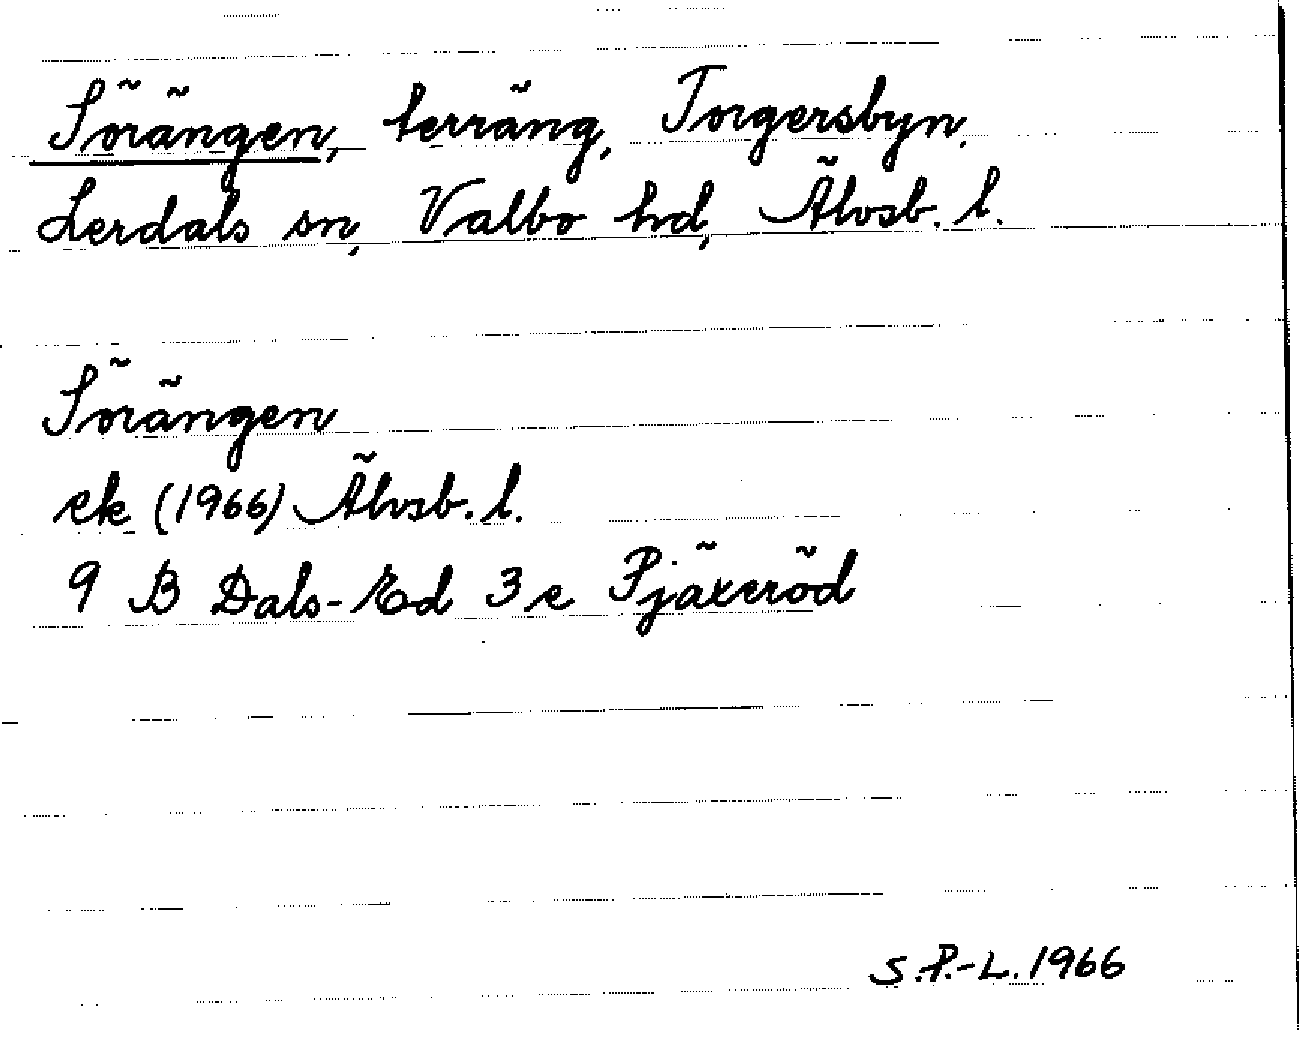 Sörängen, terräng, Torgersbyn.
Lerdals sn, Valbo hd, Älvsb. l.
Sörängen
ek (1966) Älvsb. l.
9 B Dals-Ed 3 e Pjäxeröd
S.P.-L. 1966